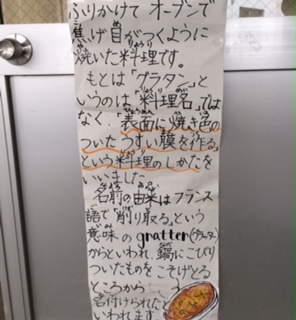 ふりかけて オーブンで
焦げ目がつくように
焼いた料理です。
もとは「グラタン」と
いうのは「料理名」では
なく、「表面に焼き色の
ついた うすい膜を作る」
という料理のしかたを
いいました。
名前の由来はフランス
語で「削り取る」という
意味の gratter(グラッテ)
からといわれ、鍋にこびり
ついたものを こそげとる
ところから
名付けられたと
いわれます